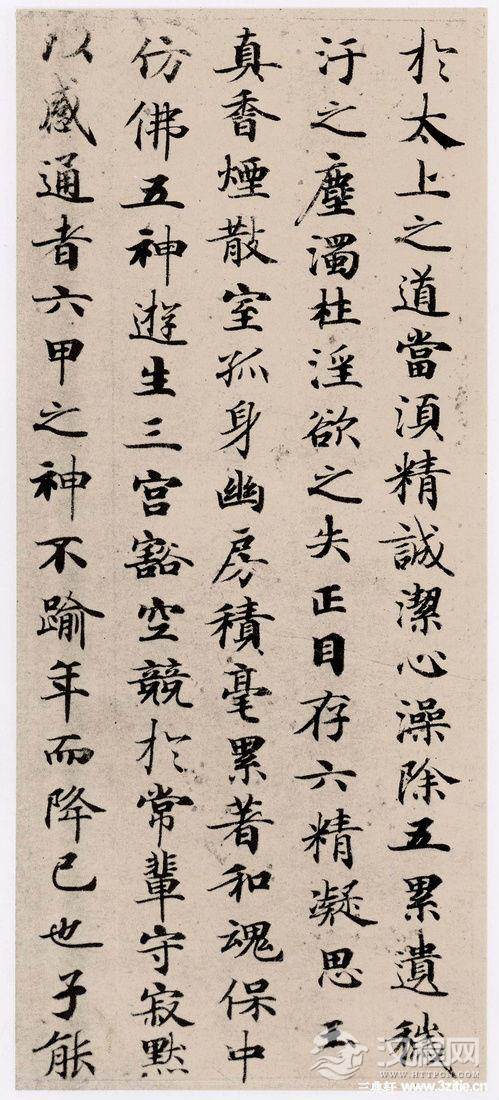 於太上之道當湏精誠潔心澡除五累遺穢
汙之塵濁杜淫欲之失正目存六精凝思玉
真香煙散室孤身幽房積毫累著和魂保中
仿佛五神遊生三宮豁空競於常輩守寂默
以感通者六甲之神不踰年而降已也子能
三典轩 www.3zitie.cn